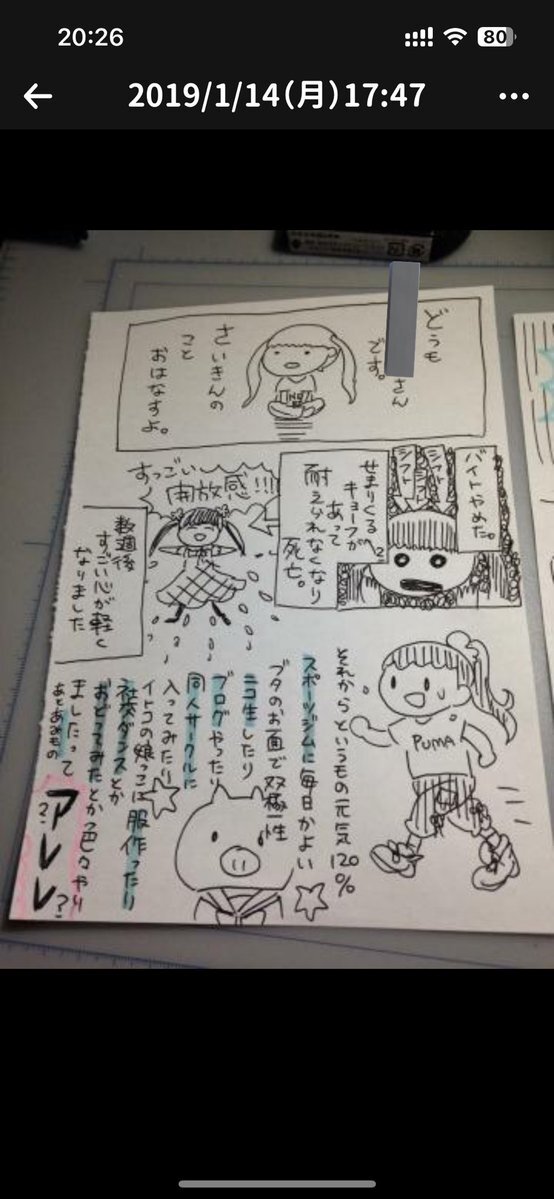 20:26
80
2019/1/14(月)17:47
どうも
さん
です。
さいきんの
こと
おはなすよ。
バイトやめた。
シフト
シフト
シフト
せまりくる
キョーフが
あって
耐えられなくなり
死亡。
すっごい
開放感!!!
数週後
すっごい心が軽く
なりました
それからというもの元気120%
PUMA
スポーツジムに毎日かよい
ブタのお面で双極性
ニコ生したり
ブログやったり
同人サークルに
入ってみたり
イトコの娘っこに服作ったり
社交ダンスとか
おどってみたとかっ色々やり
ましたって
あとあみもの
アレレ
??